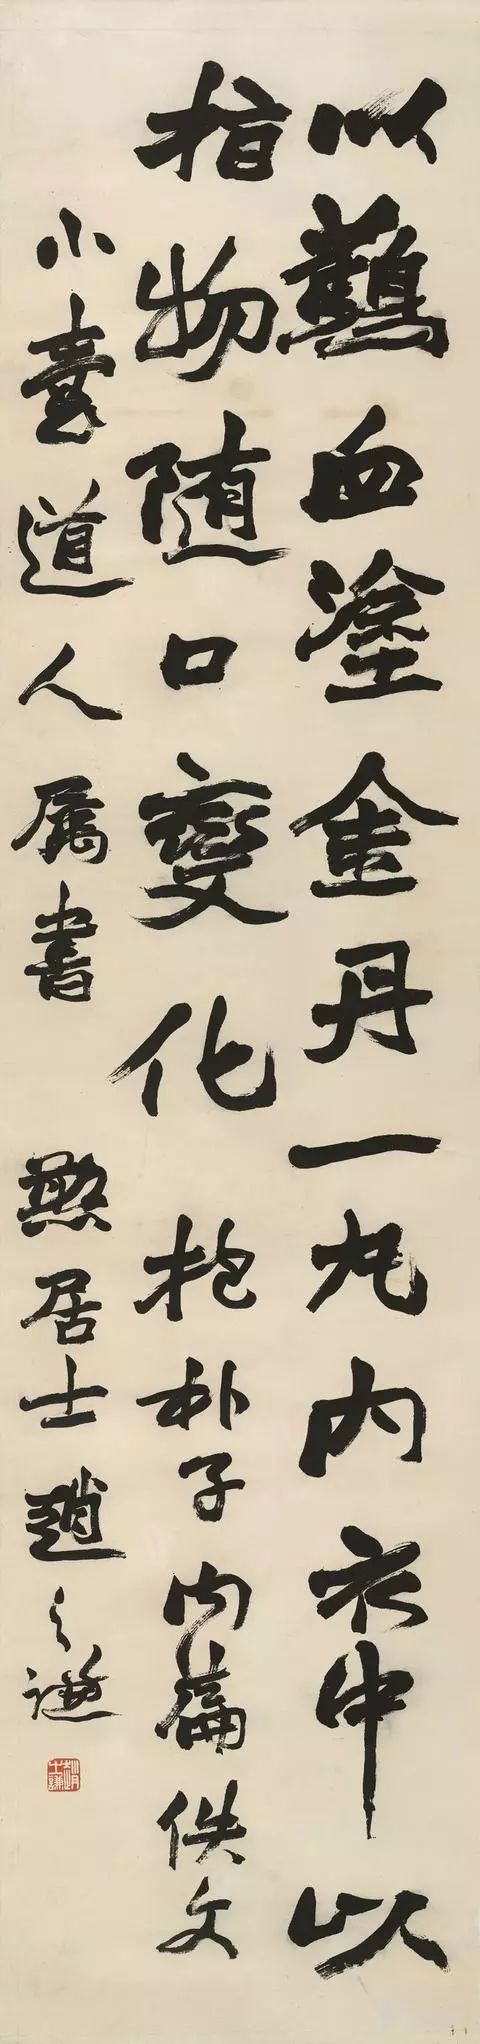 以血塗金丹一丸內衣中以
指物隨口變化 抱朴子內篇佚文
小道人屬書 憨居士趙之謙
趙之謙